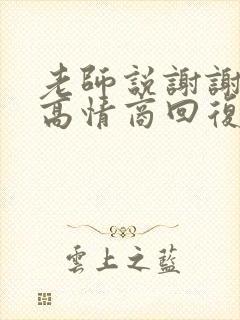 老師説謝謝
高情商回復
雲上之藍